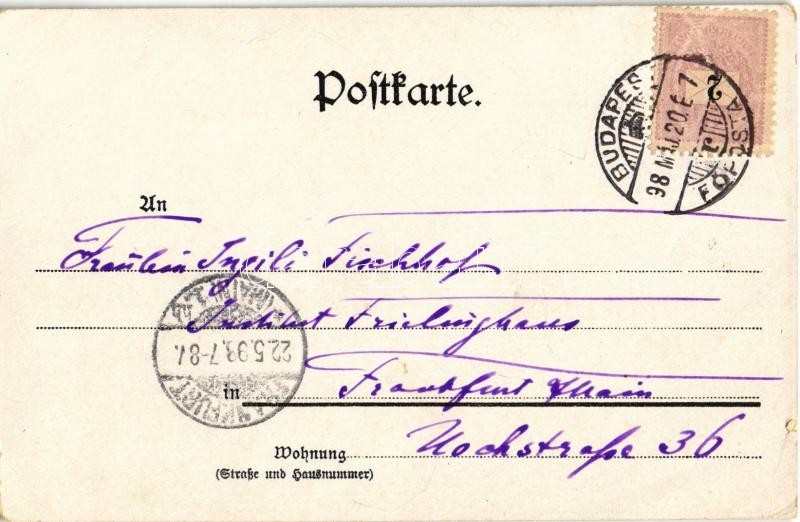 Postkarte.
2
BUDAPEST
98 MÁJ 20. 6-7
FŐPOSTA
An
Fräulein Fischhof
Institut Frielinghaus
FRANKFURT
22.5.98. 7-8
in Frankfurt a/Main
Wohnung Hochstraße 36
(Straße und Hausnummer)